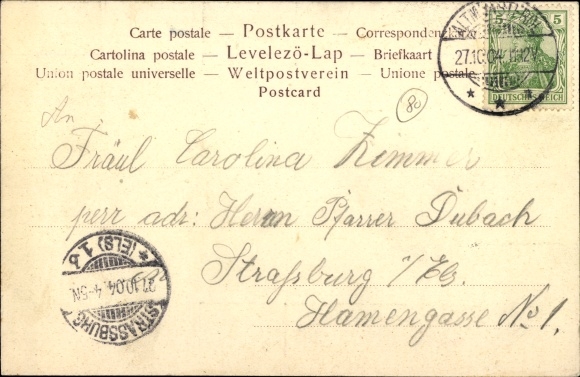 Carte postale — Postkarte — Correspondenzkarte
Cartolina postale — Levelező-Lap — Briefkaart
Union postale universelle — Weltpostverein — Unione postale
Postcard
5 5
DEUTSCHES REICH
27.10.04
80
An
Fräul Carolina Zimmer
perr adr: Herrn Pfarrer Dubach
Straßburg i/Els.
Hamengasse No 1.
STRASSBURG (ELS) 1
27.10.04. 4-5N.